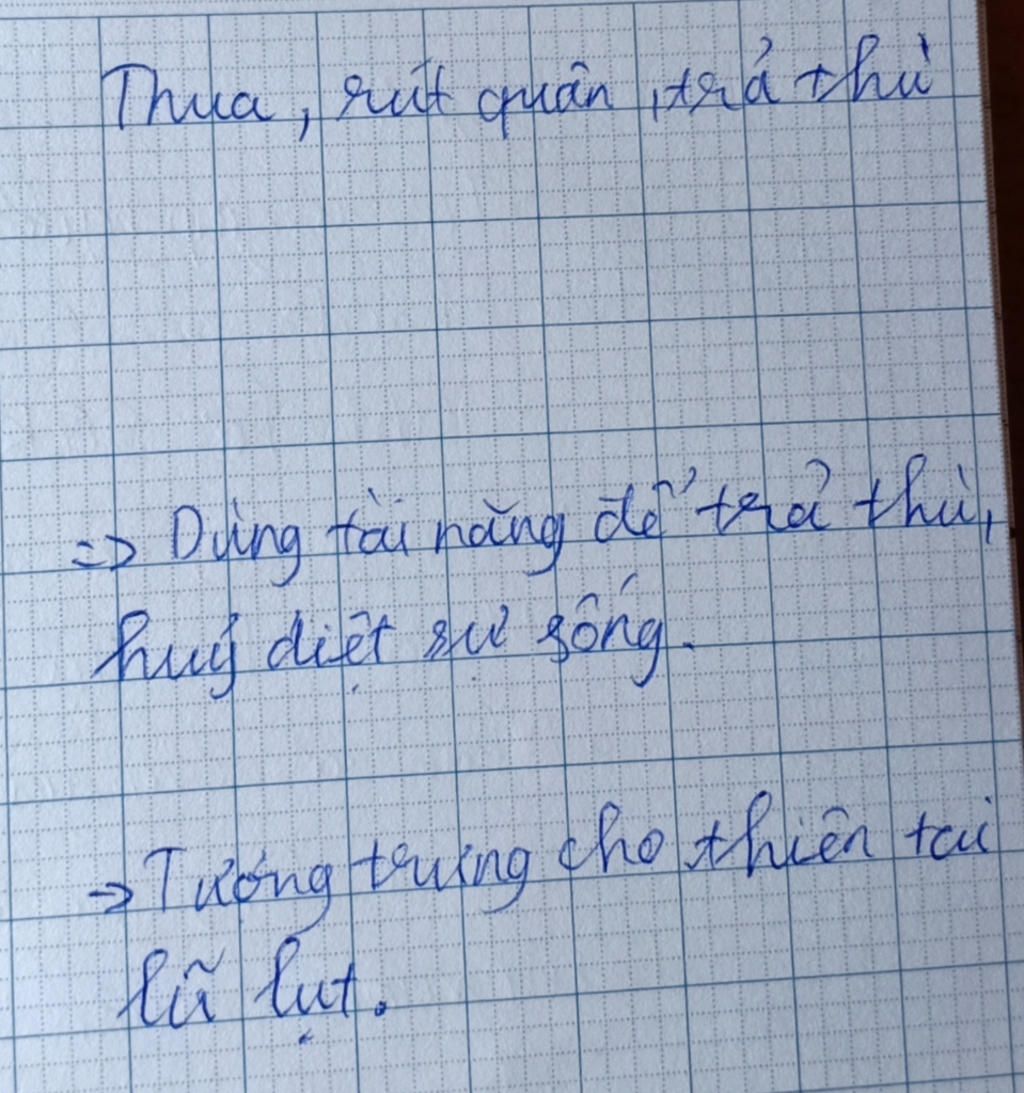 Thua, rút quân, trả thù
=> Dùng tài năng để trả thù,
huỷ diệt sự sống.
-> Tượng trưng cho thiên tai
lũ lụt.